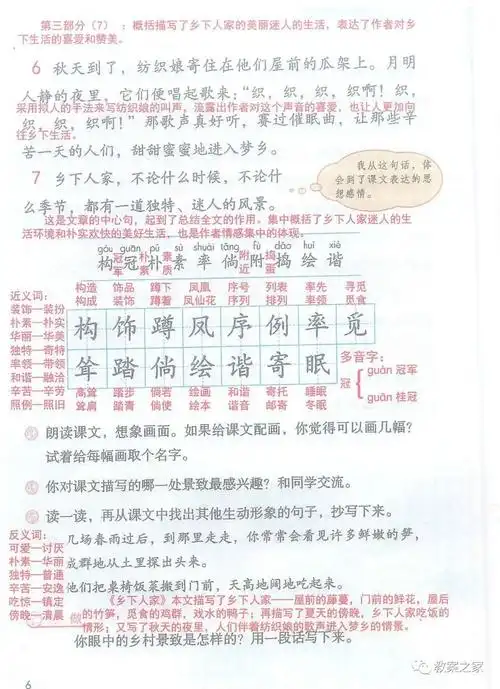 第三部分（7）：概括描写了乡下人家的美丽迷人的生活，表达了作者对乡
下生活的喜爱和赞美。
6 秋天到了，纺织娘寄住在他们屋前的瓜架上。月明
人静的夜里，它们便唱起歌来：“织，织，织，织啊！织，
采用拟人的手法来写纺织娘的叫声，流露出作者对这个声音的喜爱，也让人更加向
织，织，织啊！”那歌声真好听，赛过催眠曲，让那些辛
往乡下生活。
苦一天的人们，甜甜蜜蜜地进入梦乡。
7 乡下人家，不论什么时候，不论什
么季节，都有一道独特、迷人的风景。
我从这句话，体
会到了课文表达的思
想感情。
这是文章的中心句，起到了总结全文的作用。集中概括了乡下人家迷人的生
活环境和朴实欢快的美好生活，也是作者情感集中的体现。
gòu guān pǔ sù shuài tǎng fù dǎo huì xié
构 冠 朴 素 率 倘 附 捣 绘 谐
冠军 朴素 素质 附近 捣蛋
构造 饰品 蹲下 凤凰 序号 列表 率先 寻觅
构成 装饰 蹲着 凤仙花 序列 排列 率领 觅食
构 饰 蹲 凤 序 例 率 觅
耸 踏 倘 绘 谐 寄 眠
高耸 踏步 倘若 绘画 和谐 寄托 睡眠
耸肩 踏青 倘使 绘本 谐音 邮寄 冬眠
近义词：
装饰—装扮
朴素—朴实
华丽—华美
独特—奇特
率领—带领
和谐—融洽
辛苦—辛劳
照例—照旧
多音字：
冠
guān 冠军
guān 桂冠
朗读课文，想象画面。如果给课文配画，你觉得可以画几幅？
试着给每幅画取个名字。
你对课文描写的哪一处景致最感兴趣？和同学交流。
读一读，再从课文中找出其他生动形象的句子，抄写下来。
反义词：
可爱—讨厌
朴素—华丽
独特—普通
辛苦—安逸
吃惊—镇定
傍晚—清晨
几场春雨过后，到那里走走，你常常会看见许多鲜嫩的笋，
成群地从土里探出头来。
他们把桌椅饭菜搬到门前，天高地阔地吃起来。
《乡下人家》本文描写了乡下人家——屋前的藤蔓，门前的鲜花，屋后
的竹笋，觅食的鸡群，戏水的鸭子；再描写了夏天的傍晚，乡下人家吃饭的
情形；又写了秋天的夜里，人们伴着纺织娘的歌声进入梦乡的情景。
你眼中的乡村景致是怎样的？用一段话写下来。
6
教案之家